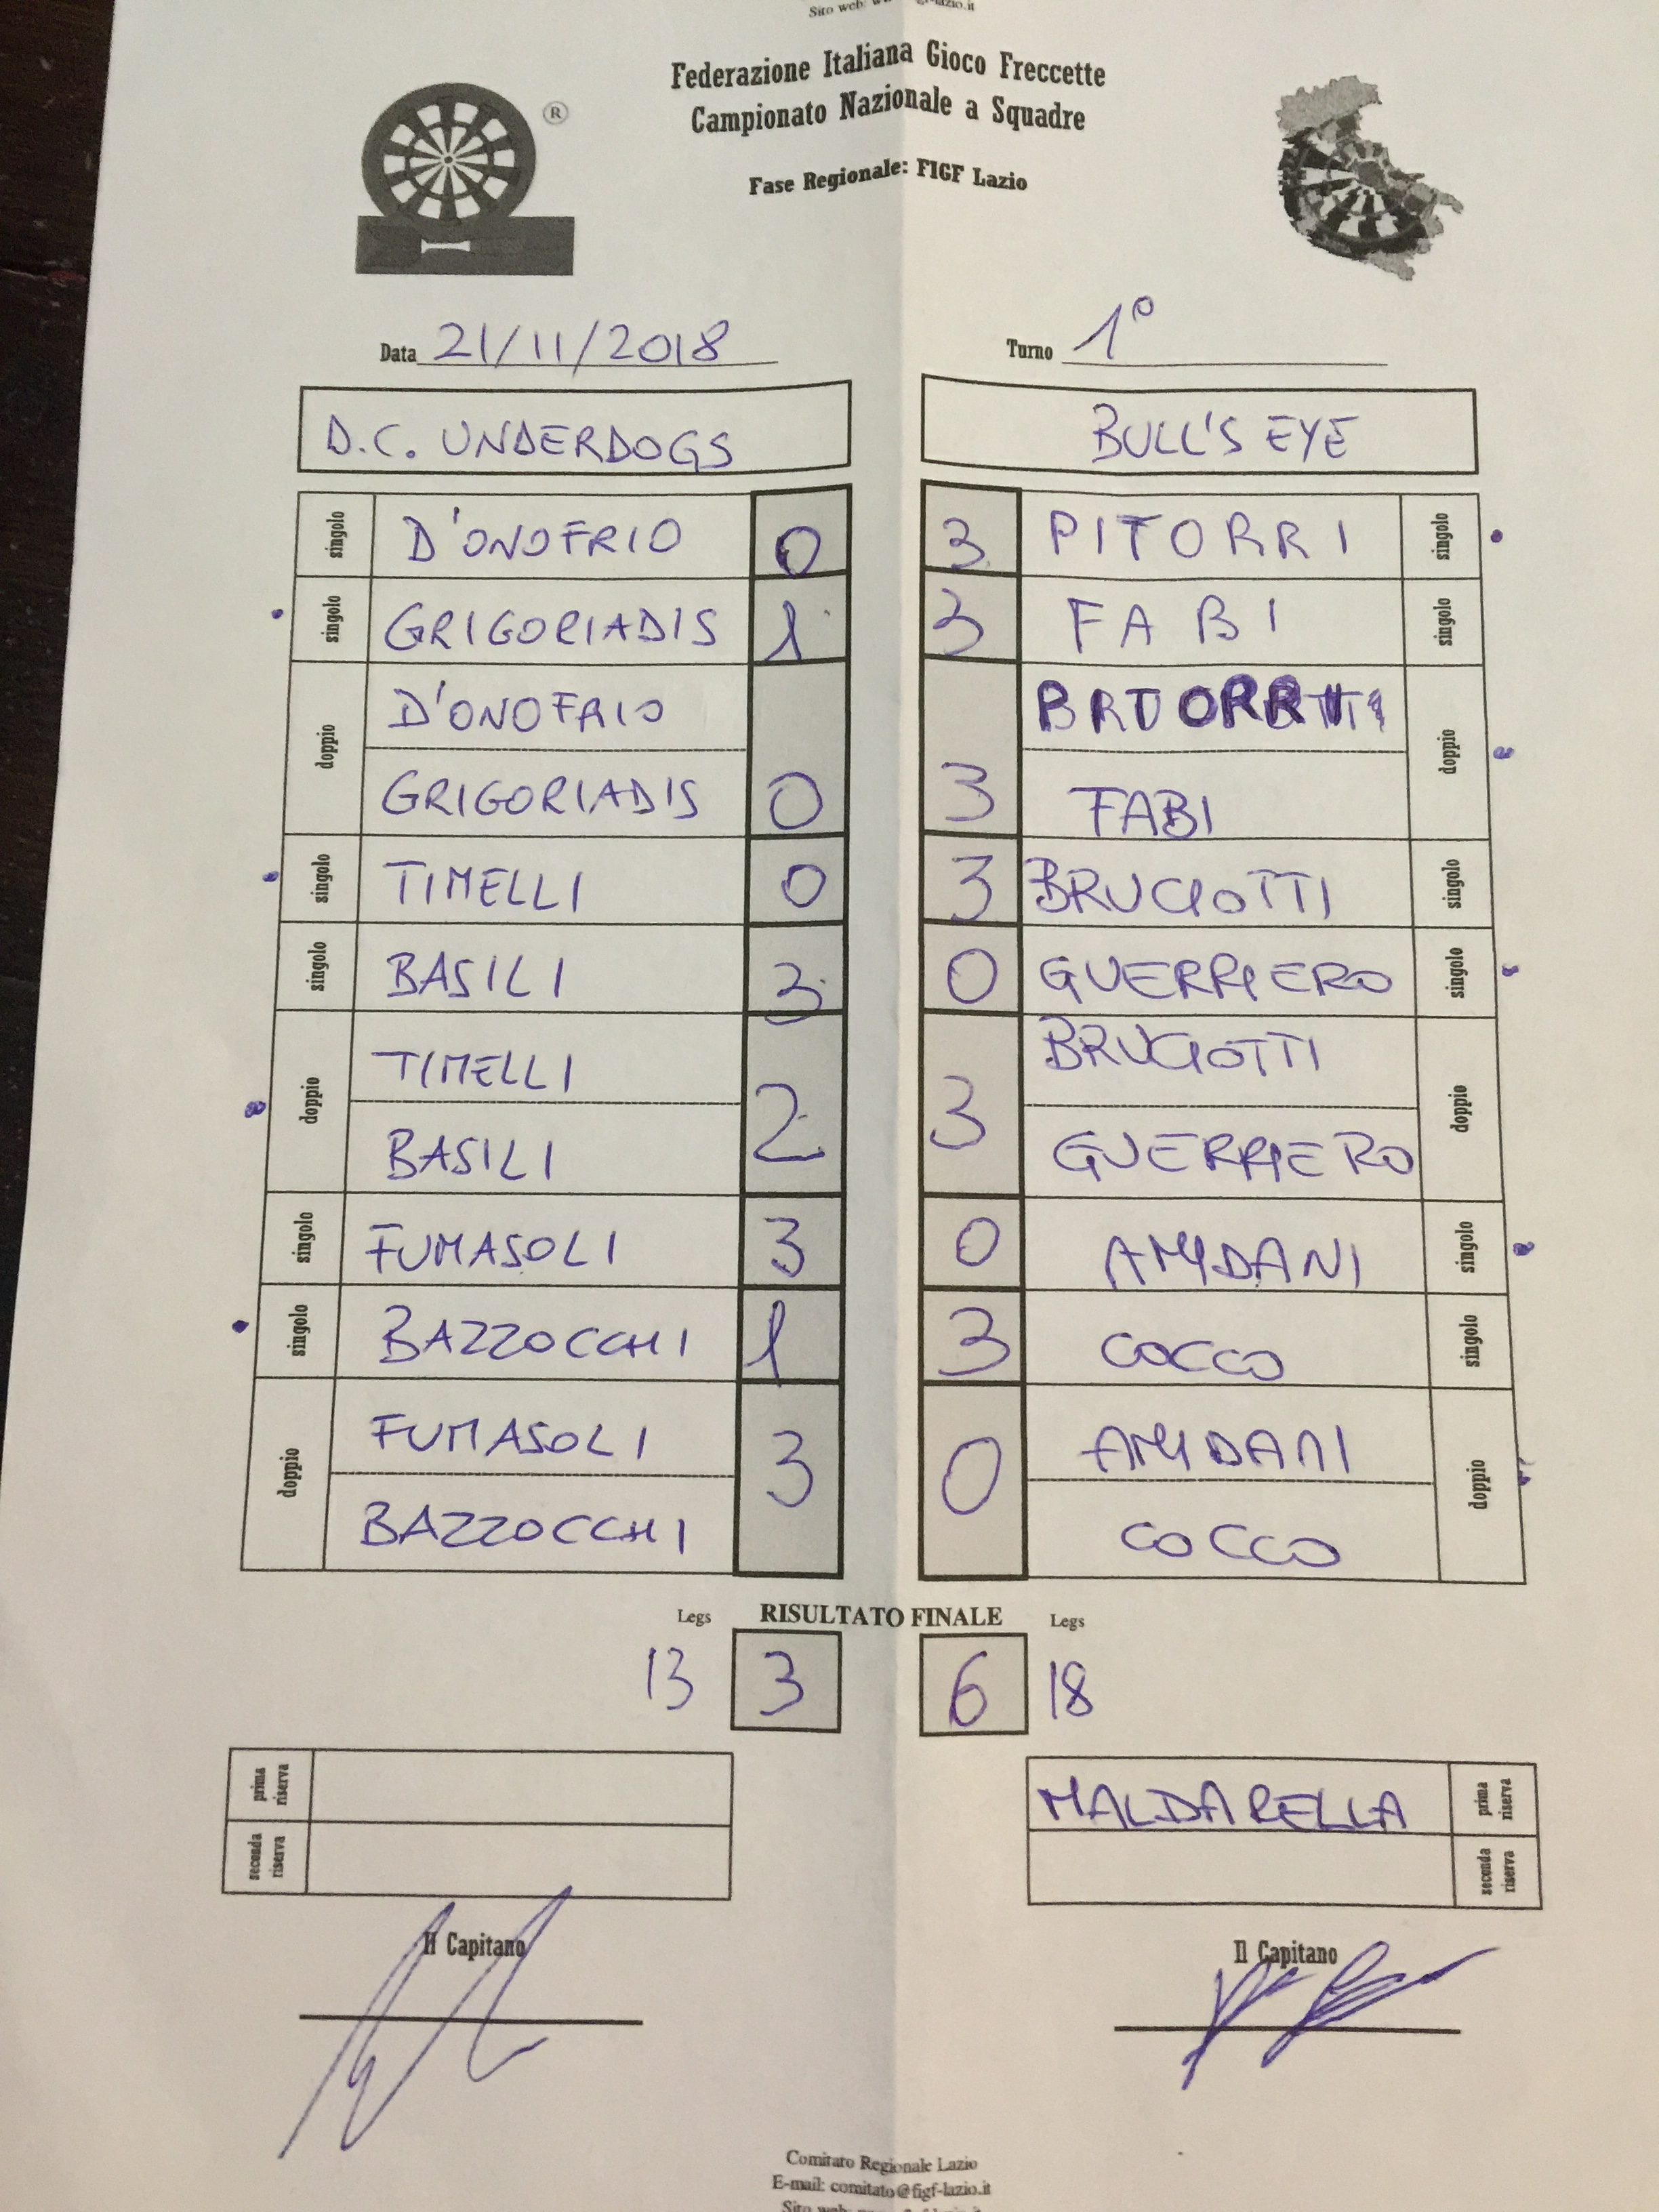 Federazione Italiana Gioco Freccette
Campionato Nazionale a Squadre
Fase Regionale: FIGF Lazio
®
Data 21/11/2018 Turno 1°
D.C. UNDERDOGS BULL'S EYE
singolo D'ONOFRIO 0 3 PITORRI singolo
singolo GRIGORIADIS 1 3 FABI singolo
doppio D'ONOFRIO
GRIGORIADIS 0 3 FABI doppio
singolo TIMELLI 0 3 BRUGIOTTI singolo
singolo BASILI 3 0 GUERRIERO singolo
doppio TIMELLI 2 3 BRUGIOTTI doppio
BASILI GUERRIERO
singolo FUMASOLI 3 0 AMIDANI singolo
singolo BAZZOCCHI 1 3 COCCO singolo
doppio FUMASOLI 3 0 AMIDANI doppio
BAZZOCCHI COCCO
Legs RISULTATO FINALE Legs
13 3 6 18
prima riserva MALDARELLA prima riserva
seconda riserva seconda riserva
Il Capitano Il Capitano
Comitato Regionale Lazio
E-mail: comitato@figf-lazio.it